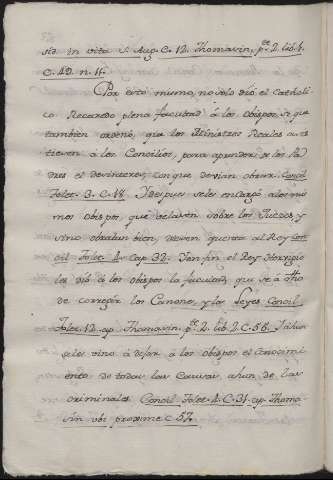 sid in vita S. Aug. C. 12. Thomasin, p.te 2. lib. 1.
C. 42. n. 11.
Por esto mismo, no solo dió el Catholi
co Recaredo plena facultad á los obispos, si que
tambien ordenó, que los Ministros Reales asis
tiesen á los Concilios, para aprender de los Pa
dres el desinteres, con que devian obrar. Concil
Tolet. 3. C. 18. Y despues se les encargó a los mis
mos obispos, que velasen sobre los Jueces, y
si no obraban bien, diesen quenta al Rey Con
cil Tolet. 4. Cap. 32. Y en fin el Rey
les dió á los obispos la facultad, que se á
de corregir los Canones, y las Leyes Concil.
Tolet. 12. ap. Thomasin. p.te 2. lib. 2. C. 56. I ahun
se les vino á dejar á los obispos el conocimi
ento de todas las Causas, ahun de las
criminales Concil Tolet. 4. C. 31. ap. Thoma
sin ubi proxime C. 57.